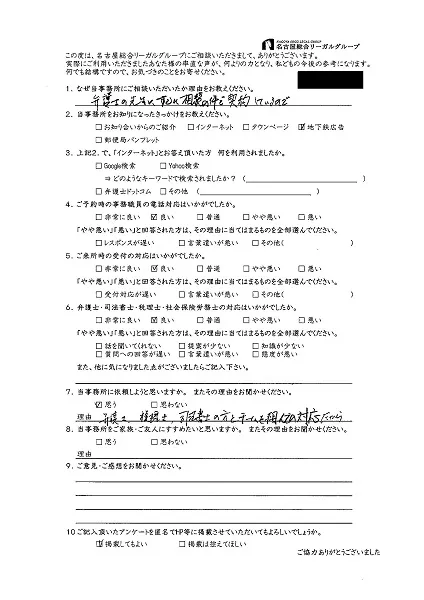 NAGOYA SOGO LEGAL GROUP
名古屋総合リーガルグループ
この度は、名古屋総合リーガルグループにご相談いただきまして、ありがとうございます。
実際にご利用いただきましたあなた様の率直な声が、何よりの力となり、私どもの今後の参考になります。
何でも結構ですので、お気づきのことをお寄せください。
1. なぜ当事務所にご相談いただいたか理由をお教えください。
弁護士の先生に
2. 当事務所をお知りになったきっかけをお教えください。
□お知り合いからのご紹介 □インターネット □タウンページ ☑地下鉄広告
□郵便局パンフレット
3. 上記2. で、「インターネット」とお答え頂いた方 何を利用されましたか。
□Google検索 □Yahoo検索
⇒どのようなキーワードで検索されましたか？( )
□弁護士ドットコム □その他 ( )
4. ご予約時の事務職員の電話対応はいかがでしたか。
□非常に良い ☑良い □普通 □やや悪い □悪い
「やや悪い」「悪い」と回答された方は、その理由に当てはまるものを全部選んでください。
□レスポンスが遅い □言葉遣いが悪い □その他( )
5. ご来所時の受付の対応はいかがでしたか。
□非常に良い ☑良い □普通 □やや悪い □悪い
「やや悪い」「悪い」と回答された方は、その理由に当てはまるものを全部選んでください。
□受付対応が遅い □言葉遣いが悪い □その他( )
6. 弁護士・司法書士・税理士・社会保険労務士の対応はいかがでしたか。
□非常に良い ☑良い □普通 □やや悪い □悪い
「やや悪い」「悪い」と回答された方は、その理由に当てはまるものを全部選んでください。
□話を聞いてくれない □提案が少ない □知識が少ない
□質問への回答が遅い □言葉遣いが悪い □態度が悪い
また、他に気になりました点がございましたらご記入下さい。
7. 当事務所に依頼しようと思いますか。 またその理由をお聞かせください。
☑思う □思わない
理由 弁護士、税理士、司法書士の方とチームを組んでの対応だから
8. 当事務所をご家族・ご友人にすすめたいと思いますか。 またその理由をお聞かせください。
□思う □思わない
理由
9. ご意見・ご感想をお聞かせください。
10 ご記入頂いたアンケートを匿名でHP等に掲載させていただいてもよろしいでしょうか。
☑掲載してもよい □掲載は控えてほしい
ご協力ありがとうございました